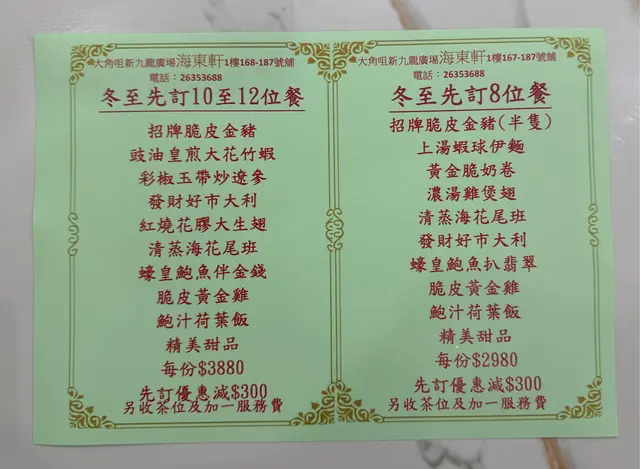 大角咀新九龍廣場海東軒1樓168-187號舖
電話：26353688
冬至先訂10至12位餐
招牌脆皮金豬
豉油皇煎大花竹蝦
彩椒玉帶炒遼參
發財好市大利
紅燒花膠大生翅
清蒸海花尾班
蠔皇鮑魚伴金錢
脆皮黃金雞
鮑汁荷葉飯
精美甜品
每份$3880
先訂優惠減$300
另收茶位及加一服務費
大角咀新九龍廣場海東軒1樓167-187號舖
電話：26353688
冬至先訂8位餐
招牌脆皮金豬(半隻)
上湯蝦球伊麵
黃金脆奶卷
濃湯雞煲翅
清蒸海花尾班
發財好市大利
蠔皇鮑魚扒翡翠
脆皮黃金雞
鮑汁荷葉飯
精美甜品
每份$2980
先訂優惠減$300
另收茶位及加一服務費